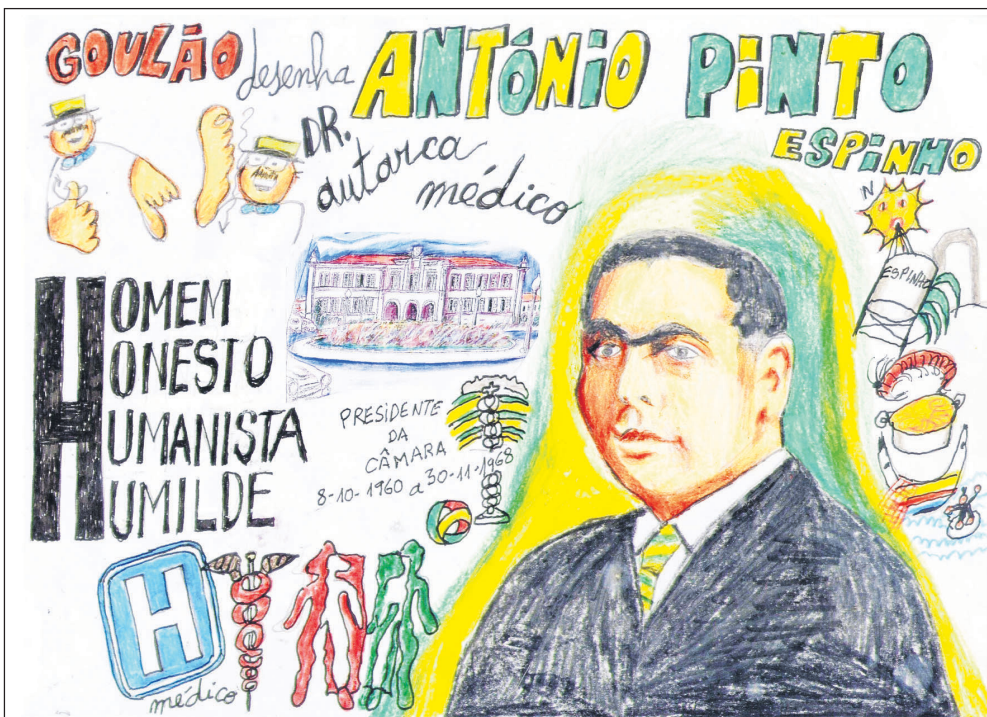 GOULÃO desenha ANTÓNIO PINTO
DR.
autarca
médico
ESPINHO
N
ESPINHO
HOMEM
HONESTO
HUMANISTA
HUMILDE
PRESIDENTE
DA
CÂMARA
8-10-1960 a 30-11-1968
H
médico